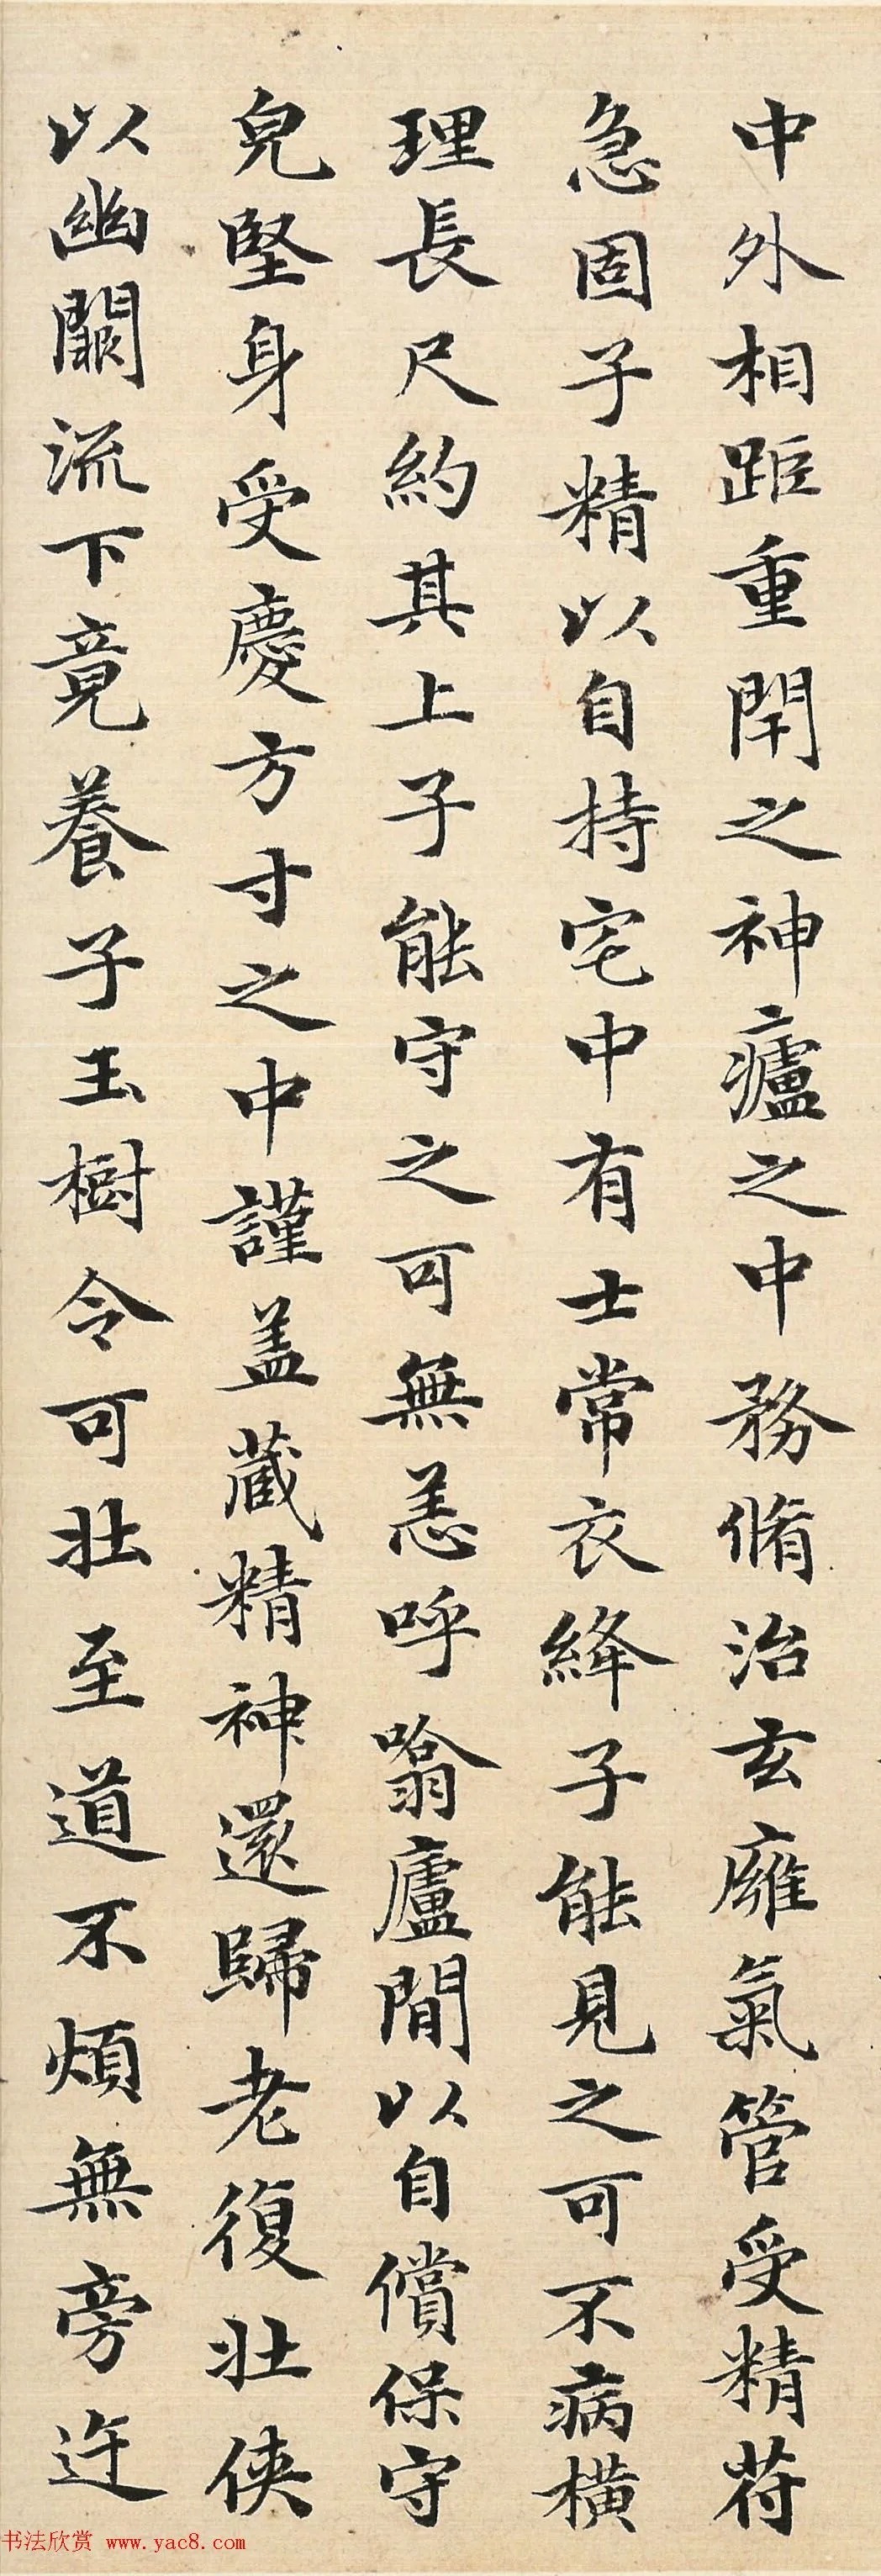 中外相距重閇之神廬之中務脩治玄癕氣管受精苻
急固子精以自持宅中有士常衣絳子能見之可不病橫
理長尺約其上子能守之可無恙呼噏廬間以自償保守
皃堅身受慶方寸之中謹盖藏精神還歸老復壯俠
以幽闕流下竟養子玉樹令可壯至道不煩無旁迕
书法欣赏 www.yac8.com